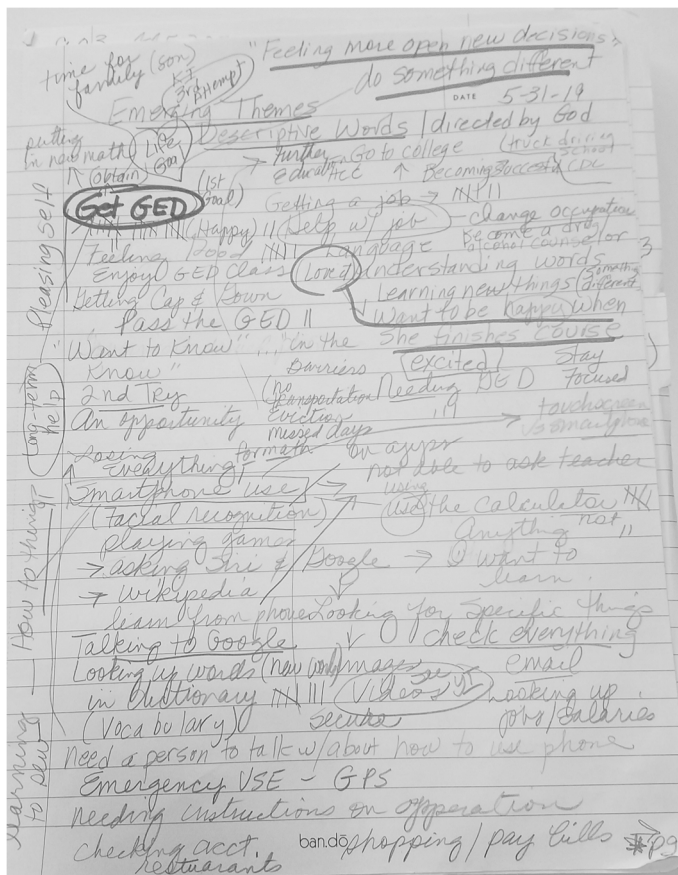 "Feeling more open new decisions"
do something different
time for family (son)
3rd attempt
DATE 5-31-19
Emerging Themes
Descriptive Words / directed by God
putting in new math
Life Goal
(Obtain)
(1st Goal)
→ further education
Go to college
(truck driving school)
CDL
Becoming successful
Get GED
Getting a job →
(Happy) ||
Help w/ job
change occupation
become a drug
alcohol counselor
Feeling good
Language
Enjoy GED class
(Loved) understanding words
Getting Cap & Gown
Learning new things (something different)
Pass the GED ||
Want to be happy when
she finishes course
"Want to Know" ... "in the
Know"
Barriers
(excited)
Stay
Focused
2nd Try
(no transportation
Needing GED
An opportunity
Eviction
missed days
touchscreen
vs smartphone
Losing
Everything
for math
on apps
not able to ask teacher
Smartphone use
using
use the calculator
(facial recognition)
Anything not
playing games
→ asking Siri & Google → I want to
learn.
→ wikipedia
learn from phone
Looking for specific things
Talking to Google
check everything
Looking up words (new words)
Images
email
in dictionary
Videos
Looking up
jobs/salaries
(Vocabulary)
secure
Need a person to talk w/about how to use phone
Emergency USE - GPS
needing instructions on opperation
checking acct.
ban.dō
shopping / pay bills
resturants
Pleasing self
Long-term help
How to things
Learning
to sew